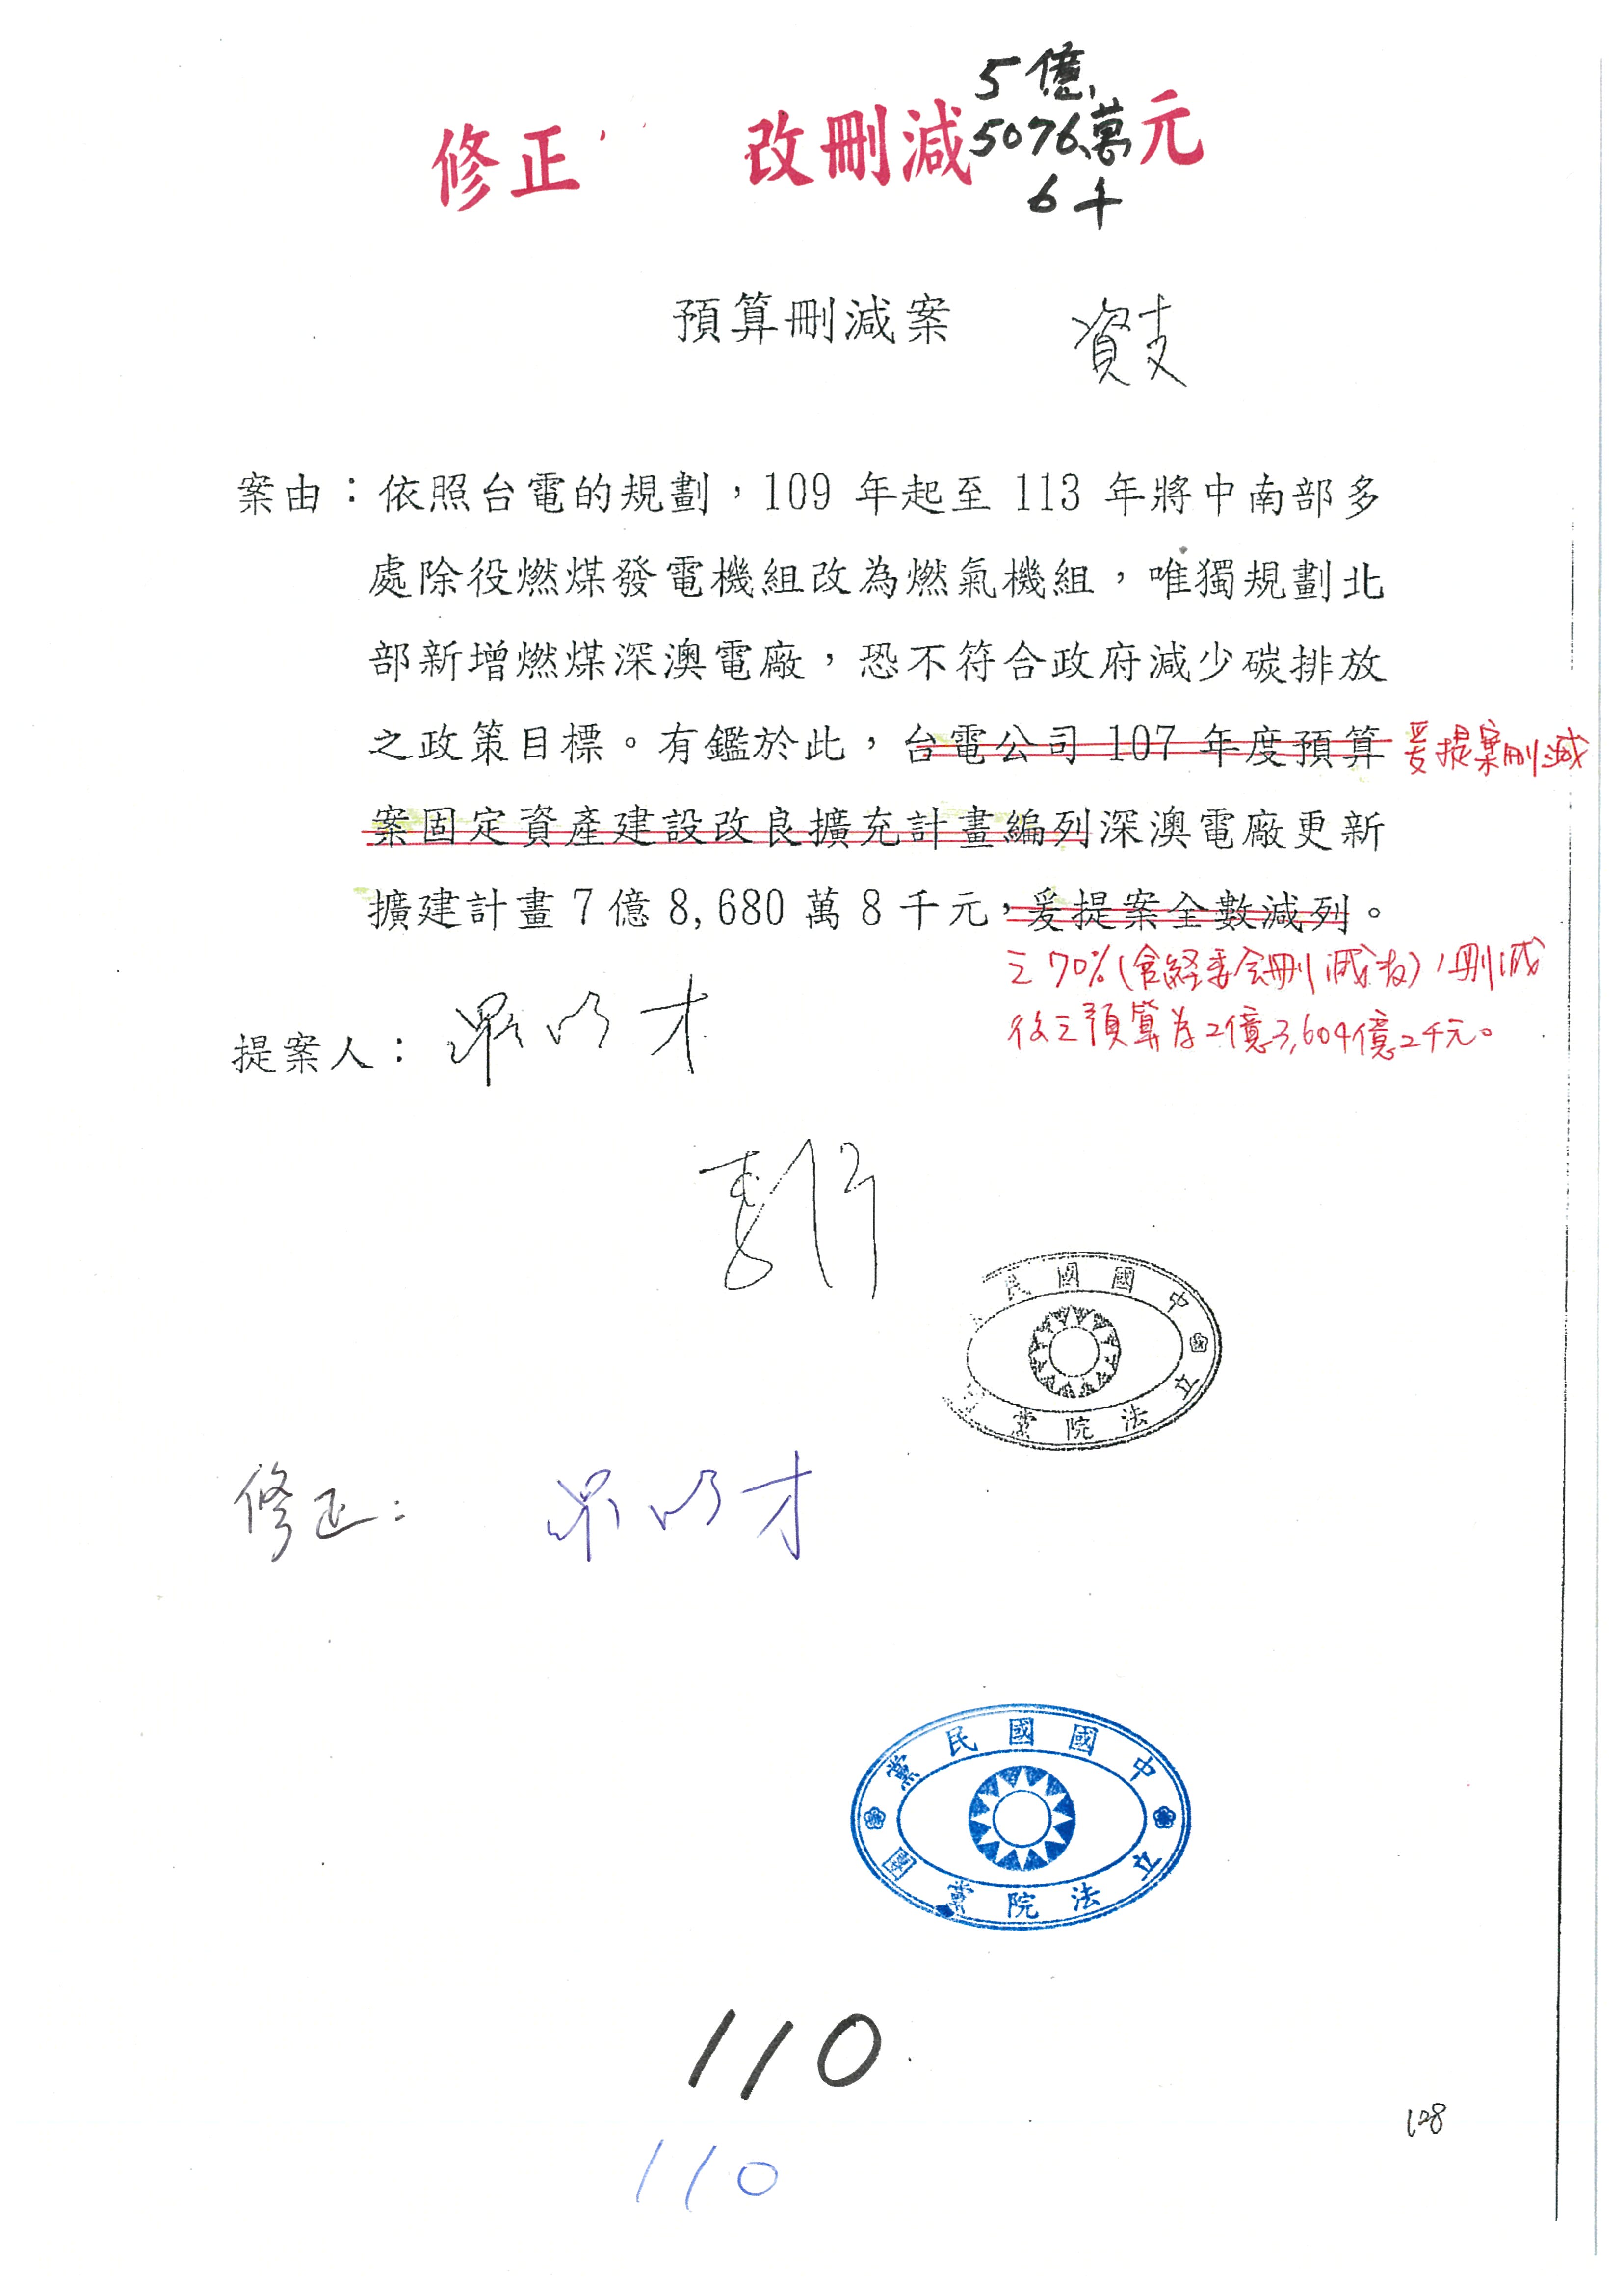 5億
修正 改刪減5076萬元
6千
預算刪減案 資支
案由：依照台電的規劃，109 年起至 113 年將中南部多
處除役燃煤發電機組改為燃氣機組，唯獨規劃北
部新增燃煤深澳電廠，恐不符合政府減少碳排放
之政策目標。有鑑於此，台電公司 107 年度預算 爰提案刪減
案固定資產建設改良擴充計畫編列深澳電廠更新
擴建計畫 7 億 8,680 萬 8 千元，爰提案全數減列。
之70%(含經委會刪減数)，刪減
後之預算為2億3,604億2千元。
提案人：
中國國民黨
立法院黨
修正：
中國國民黨
立法院黨團
110
128
110